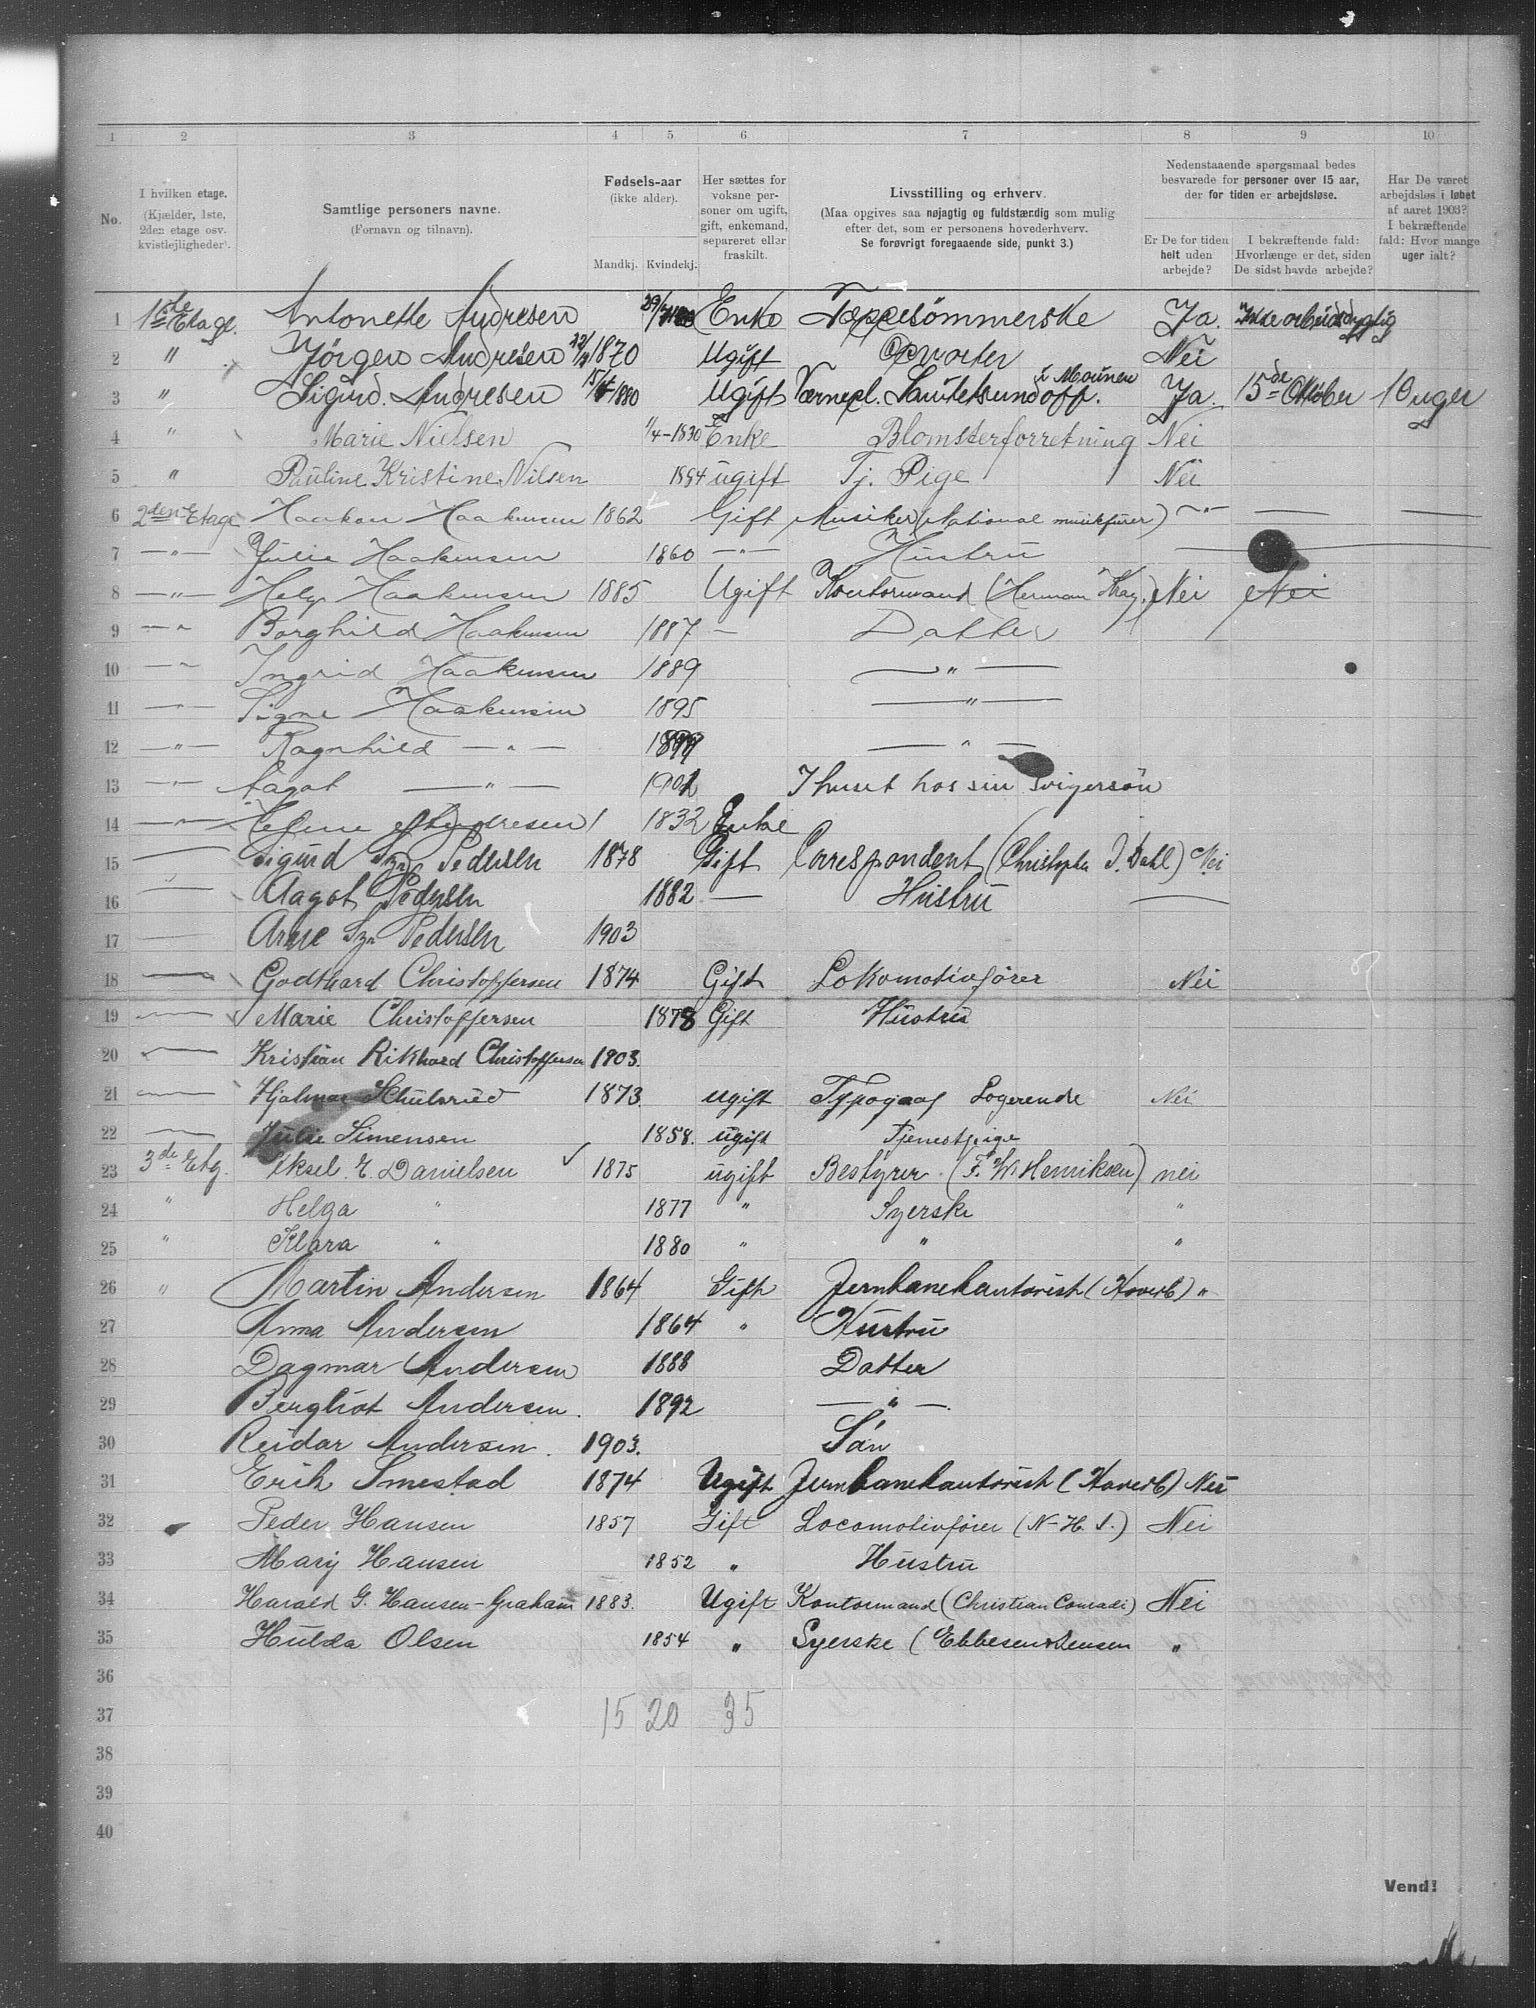 1 2 3 4 5 6 7 8 9 10
No. I hvilken etage. (Kjælder, 1ste, 2den etage osv. kvistlejligheder). Samtlige personers navne. (Fornavn og tilnavn). Fødsels-aar (ikke alder). Mandkj. Kvindekj. Her sættes for voksne personer om ugift, gift, enkemand, separeret eller fraskilt. Livsstilling og erhverv. (Maa opgives saa nøjagtig og fuldstændig som mulig efter det, som er personens hovederhverv. Se forøvrigt foregaaende side, punkt 3.) Nedenstaaende spørgsmaal bedes besvarede for personer over 15 aar, der for tiden er arbejdsløse. Er De for tiden helt uden arbejde? I bekræftende fald: Hvorlænge er det, siden De sidst havde arbejde? Har De været arbejdsløs i løbet af aaret 1903? I bekræftende fald: Hvor mange uger ialt?
1 1ste Etage. Antonette Andresen 29/7 Enke Tæppesömmerske Ja. Ikke arbeidsdygtig
2 " Jörgen Andresen 1870 Ugift Opvarter Nei
3 " Sigurd Andresen 1880 Ugift Værnepl. Ja 15de Oktober 10 uger
4 " Marie Nielsen 1/4-1830 Enke Blomsterforretning Nei
5 " Pauline Kristine Nilsen 1884 ugift Tj. Pige Nei
6 2den Etage Haakon Haakensen 1862 Gift Musiker (National musikfører) — " — — —
7 — " — Julie Haakensen 1860 — " — Hustru —
8 — " — Helge Haakensen 1885 Ugift Kontormand (Herman Krag) Nei Nei
9 — " Borghild Haakensen 1887 — Datter
10 — " Ingrid Haakensen 1889 — " —
11 — " — Signe Haakensen 1895 — " —
12 — " — Ragnhild — " — — " —
13 — " — Aagot — " —
I huset hos sin svigersön
14 — " — Andresen 1832 Enke
15 — Sigurd Pedersen 1878 Gift Correspondent (Christopher J. Dahl) Nei
16 — Aagot Pedersen 1882 — Hustru —
17 — Arne Pedersen 1903
18 — Godthard Christoffersen 1874 Gift Lokomotivfører Nei
19 — Marie Christoffersen 1878 Gift Hustru
20 — Kristian Rikhard Christoffersen 1903.
21 — Hjalmar Schulsrud 1873 ugift Typograf Logerende Nei
22 — Julie Simensen 1858. ugift Tjenestpige
23 3de Etg. Aksel E. Danielsen 1875 ugift Bestyrer (F. W. Henriksen) nei
24 " Helga " 1877 " Syerske "
25 " Klara " 1880 " " "
26 " Martin Andersen 1864 Gift Jernbanekontorist (Hovedb) "
27 Anna Andersen 1864 " Hustru
28 Dagmar Andersen 1888 Datter
29 Bergliot Andersen. 1892 — " —.
30 Reidar Andersen. 1903. Sön
31 Erik Smestad 1874 Ugift Jernbanekontorist (Hovedb) Nei
32 Peder Hansen 1857 Gift Locomotivfører (N-H. J.) Nei
33 Mary Hansen 1852 " Hustru
34 Harald G. Hansen-Graham 1883. Ugift Kontormand (Christian Conradi) Nei
35 Hulda Olsen 1854 " Syerske (Ebbesen & Jensen "
36
37 15 20 35
38
39
40
Vend!